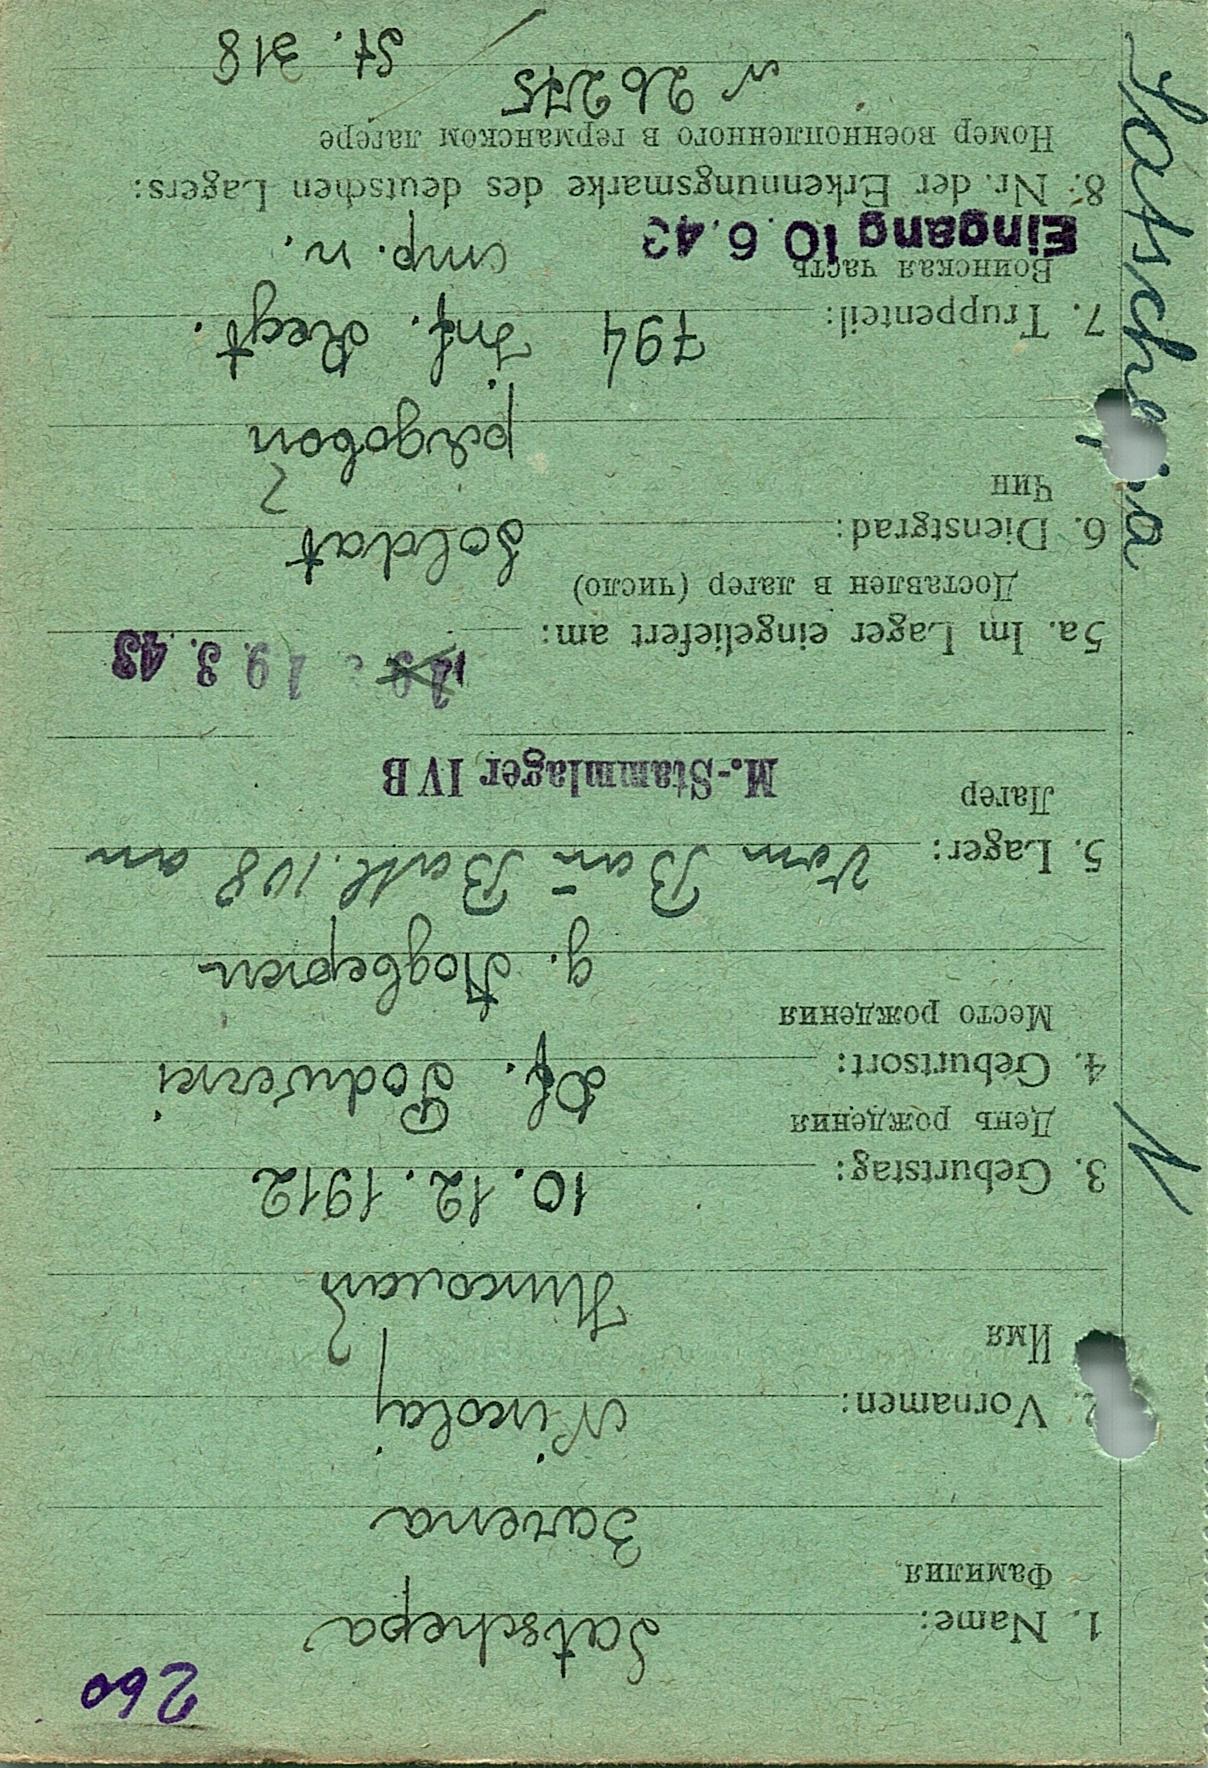 260
1. Name: Satschepa
Фамилия
Зачепа
2. Vornamen: Nikolaj
Имя
Николай
3. Geburtstag: 10.12.1912
День рождения
4. Geburtsort: Df. Podwerki
Место рождения
д.
5. Lager: Vom Bau-Batl. 108 an
Лагер
M.-Stammlager IV B
19. 3. 43
5a. Im Lager eingeliefert am:
Доставлен в лагер (число)
6. Dienstgrad: Soldat
Чин
рядовой
7. Truppenteil: 794 Inf. Regt.
Воинская часть
стр. п.
Eingang 10. 6. 43
8. Nr. der Erkennungsmarke des deutschen Lagers:
Номер военнопленного в германском лагере
N 26275
St. 318
Satschepa
N